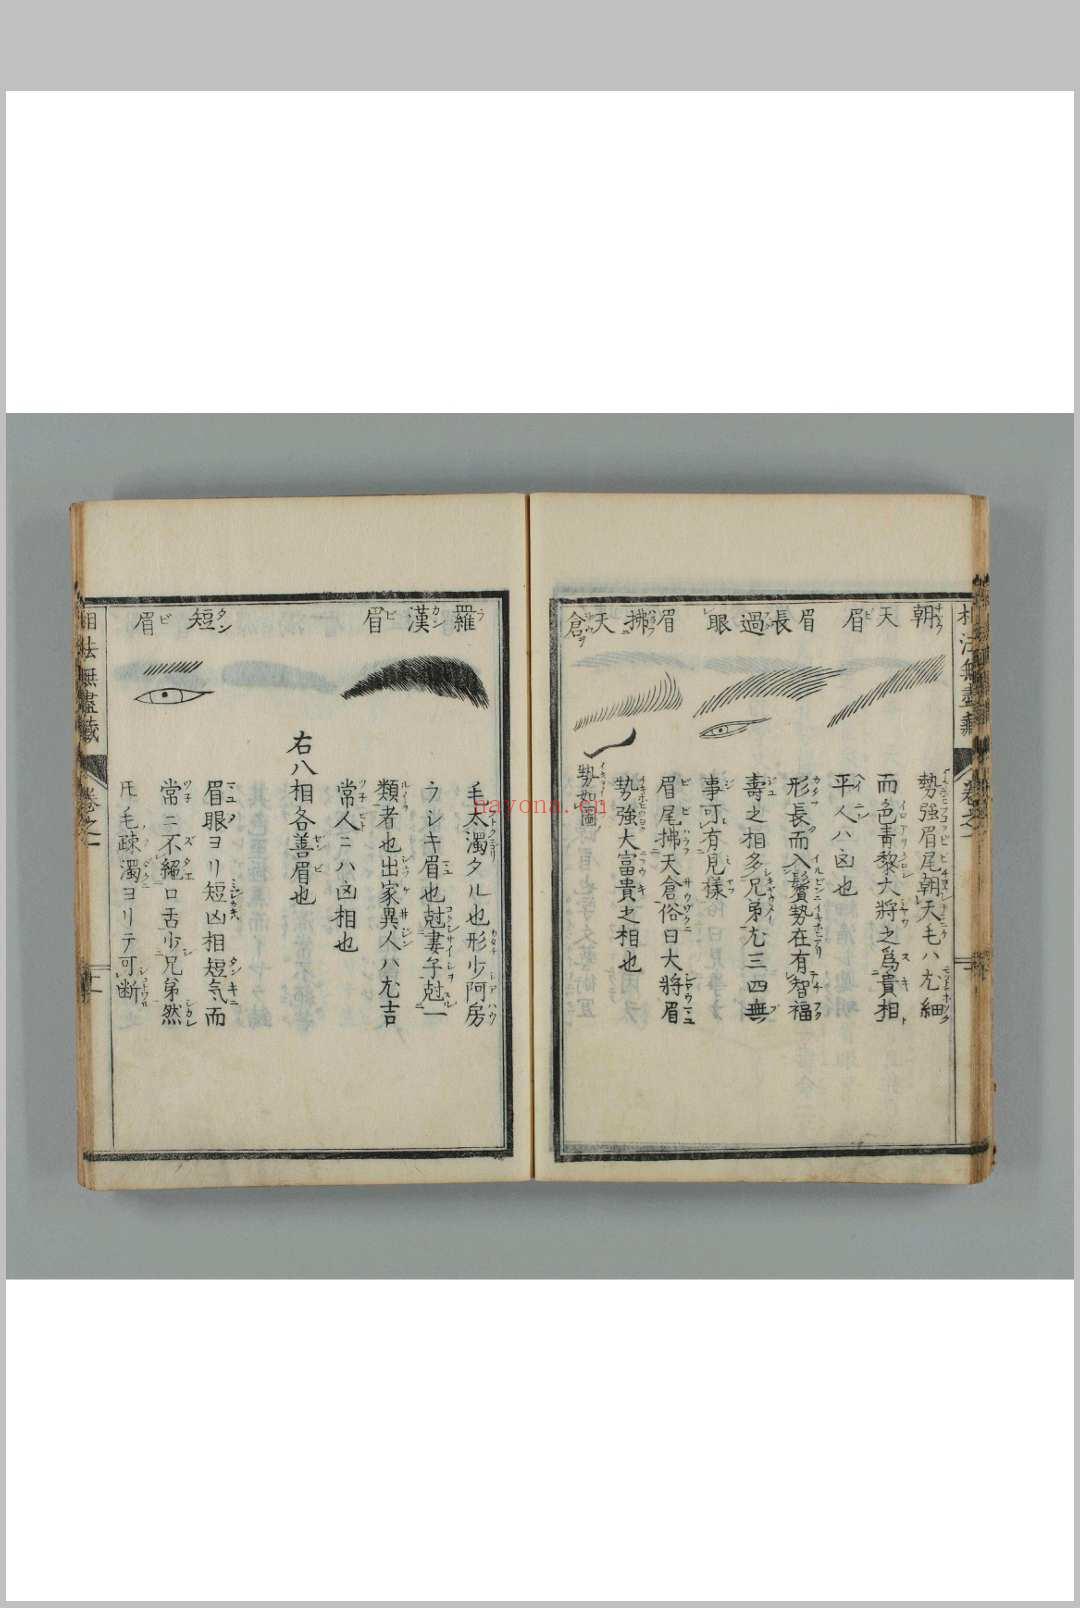 相法無盡藏
卷之一
朝天眉
勢強眉尾朝天毛ハ尤細
而色靑黎大將之爲貴相
平人ハ凶也
眉長過眼
形長而入鬢勢在有智福
壽之相多兄弟尤三四無
事可有見樣
眉拂天倉
勢如圖
眉尾拂天倉俗曰大將眉
勢強大富貴之相也
羅漢眉
毛太濁タル也形少阿房
ラシキ眉也尅妻子尅一
類者也出家異人ハ尤吉
常人ニハ凶相也
右八相各善眉也
短眉
眉眼ヨリ短凶相短気而
常ニ不絕口舌少兄弟然
𪜈毛疎濁ヨリテ可斷
相法無盡藏
卷之一
nayona.cn